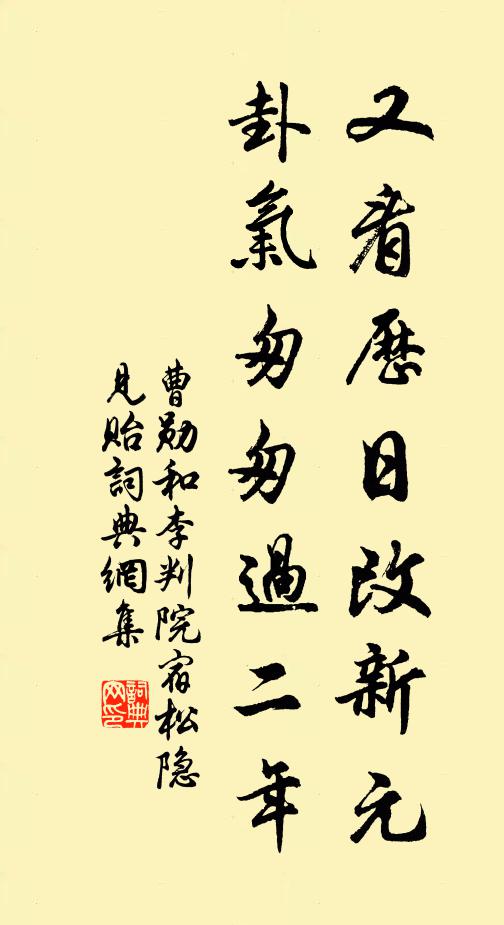 又看歷日改新元
卦氣匆匆過二年
曹勛和李判院宿松隐
見貽詞典網集
詞典网印